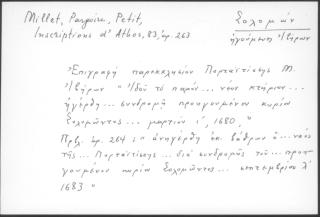 Millet, Pargoire, Petit,
Inscriptions d'Athos, 83, ἀρ. 263
Σολομών
ἡγούμενος Ἰβήρων
Ἐπιγραφὴ παρεκκλησίου Πορταϊτίσσης Μ.
Ἰβήρων "Ἰδοῦ τὸ παρόν... νέον κτήριον...
ἠγέρθη... συνδρομῇ προηγουμένου κυρίου
Σολομῶντος... μαρτίου ι´, 1680."
Πρβλ. ἀρ. 264 : "ἀνηγέρθη ἐκ βάθρων ὁ... ναός
τῆς... Πορταϊτίσσης... διὰ συνδρομῆς τοῦ... προη-
γουμένου κυρίου Σολομῶντος... σεπτεμβρίου λ´
1683"